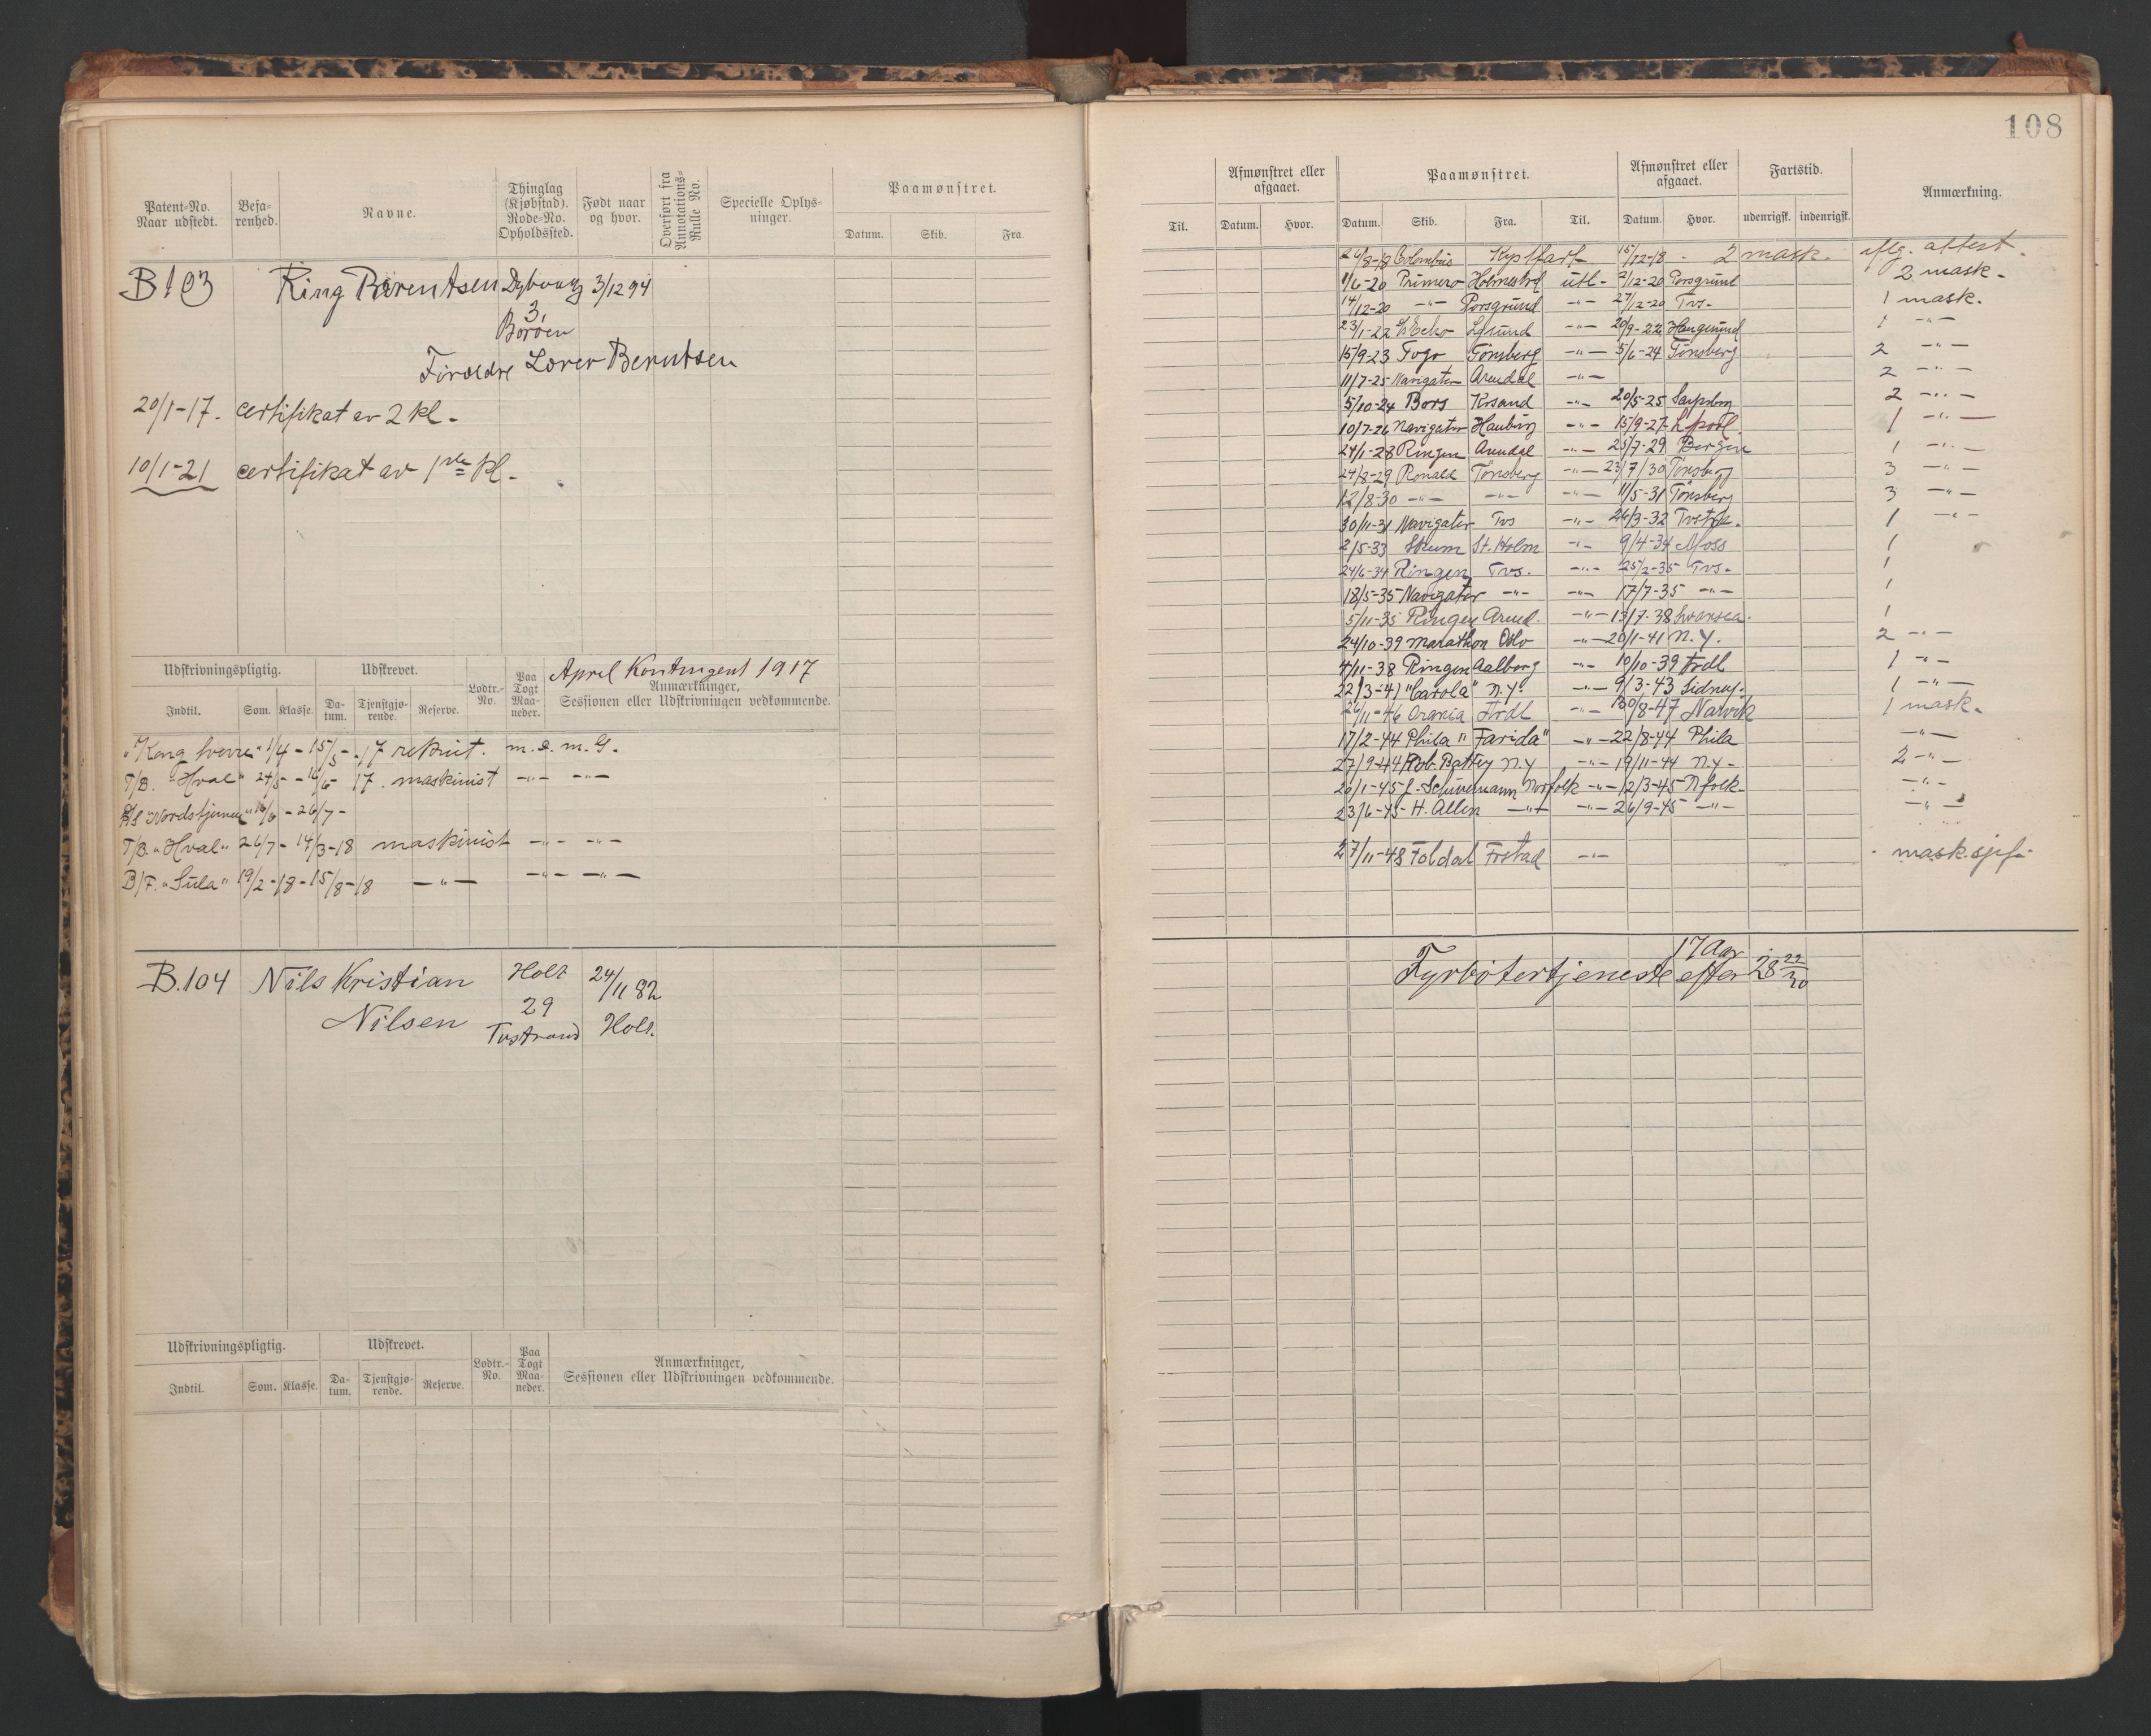 108
Patent-No. Naar udstedt.
Befarenhed.
Navne.
Thinglag (Kjøbstad). Rode-No. Opholdssted.
Født naar og hvor.
Overført fra Annotations-Rulle No.
Specielle Oplysninger.
Paamønstret.
Datum. Skib. Fra.
B103 Ring Berentsen Dybvaag 3/12 94
3,
Borøen
Forældre Lærer Berntsen
20/1-17. certifikat av 2 kl.
10/1-21 certifikat av 1ste kl.
Udskrivningspligtig. Udskrevet. Lodtr.-No. Paa Togt Maaneder. April Kontingent 1917
Anmærkninger, Sessionen eller Udskrivningen vedkommende.
Indtil. Som. Klasse. Datum. Tjenstgjørende. Reserve.
"Kong Sverre" 1/4 - 15/5 - 17 rekrut. m. d. m. G.
T/B. "Hval" 24/5 - 16/6 - 17. maskinist -"- -"-
"Nordstjernen" 16/6 - 26/7 -
T/B. "Hval" 26/7 - 14/3-18 maskinist -"- -"-
B/F. "Sula" 19/2-18 - 15/8-18 -"- -"- -"-
B.104 Nils Kristian Holt 24/11 82
Nilsen 29
Tvstrand Holt.
Udskrivningspligtig. Udskrevet. Lodtr.-No. Paa Togt Maaneder. Anmærkninger, Sessionen eller Udskrivningen vedkommende.
Indtil. Som. Klasse. Datum. Tjenstgjørende. Reserve.
Afmønstret eller afgaaet. Paamønstret. Afmønstret eller afgaaet. Fartstid. Anmærkning.
Til. Datum. Hvor. Datum. Skib. Fra. Til. Datum. Hvor. udenrigsk. indenrigsk.
26/8-18 Colombus Kystfart 15/12-18 - 2 mask. iflg. attest.
1/6-20 Primero Holmestrd utl- 2/12-20 Porsgrund 2 mask-
14/12-20 -"- Porsgrund -"- 27/12-20 Tvs- 1 mask.
23/1-22 Echo Lgsund -"- 20/9-22 Haugesund 1 -"-
15/9-23 Togo Tönsberg -"- 5/6-24 Tönsberg 2 -"-
11/7-25 Navigator Arendal -"- 2 -"-
5/10-24 Bors Krsand -"- 20/5-25 Sarpsborg 2 -"-
10/7-26 Navigator Hamburg -"- 15/9-27 Lpool. 1 -"-
24/1-28 Ringen Arendal -"- 25/7-29 Bergen 1 -"-
24/8-29 Ronald Tönsberg -"- 23/7/30 Tönsberg 3 -"-
12/8-30 -"- -"- -"- 11/5-31 Tönsberg 3 -"-
30/11-31 Navigator Tvs -"- 26/3-32 1 -"-
2/5-33 Skum St.Holm -"- 9/4-34 Moss 1
24/6-34 Ringen Tvs. -"- 25/2-35 Tvs- 1
18/5-35 Navigator -"- -"- 17/7-35 -"- 1
5/11-35 Ringen Arend. -"- 13/7-38 Swansea. 1
24/10-39 Marathon Oslo -"- 20/1-41 N.Y. 2 -"-
4/11-38 Ringen Aalborg -"- 10/10-39 Ardl 1 -"-
22/3-41 "Carola" N.Y. -"- 9/3-43 Sidney. 1 -"-
26/11-46 Orania Ardl -"- 30/8-47 Narvik 1 mask.
17/2-44 Phila "Farida" -"- 22/8-44 Phila -"-
27/9-44 Rob. Battey N.Y -"- 19/11-44 N.Y- 2 -"-
20/1-45 Norfolk -"- 12/3-45 Nfolk- -"-
23/6-45- H. Allen -"- -"- 26/9-45 -"- -"-
27/11-48 Foldal Frstad -"- mask.sjef.
17 Aar
Fyrbötertjeneste efter 28 22/30